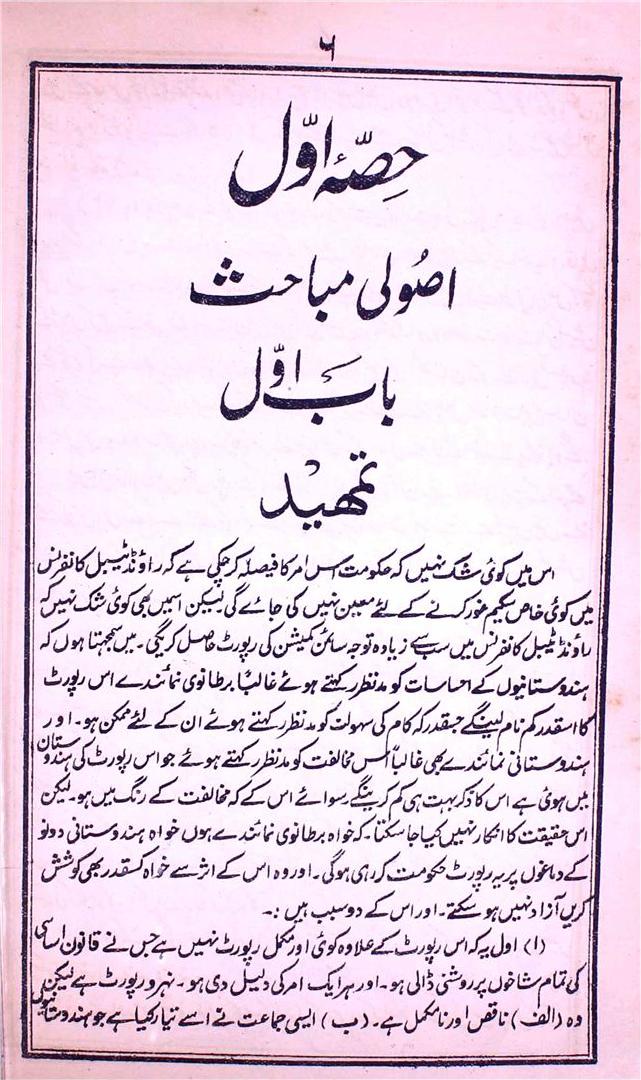 ۶
حِصّہٴ اوّل
اصُولی مباحث
بابَ اوّل
تمہید
اس میں کوئی شک نہیں کہ حکومت اس امر کا فیصلہ کر چکی ہے کہ راؤنڈ ٹیبل کانفرنس
میں کوئی خاص سکیم غور کرنے کے لئے معین نہیں کی جائے گی لیکن اسمیں بھی کوئی شک نہیں کہ
راؤنڈ ٹیبل کانفرنس میں سب سے زیادہ توجہ سائمن کمیشن کی رپورٹ حاصل کریگی۔ میں سمجہتا ہوں کہ
ہندوستانیوں کے احساسات کو مدنظر رکہتے ہوئے غالباً برطانوی نمائندے اس رپورٹ
کا اسقدر کم نام لینگے جسقدر کہ کام کی سہولت کو مدنظر رکہتے ہوئے ان کے لئے ممکن ہو۔ اور
ہندوستانی نمائندے بھی غالباً اس مخالفت کو مدنظر رکہتے ہوئے جو اس رپورٹ کی ہندوستان
میں ہوئی ہے اس کا ذکر بہت ہی کم کرینگے سوائے اس کے کہ مخالفت کے رنگ میں ہو۔ لیکن
اس حقیقت کا انکار نہیں کیا جا سکتا۔ کہ خواہ برطانوی نمائندے ہوں خواہ ہندوستانی دونو
کے دماغوں پر یہ رپورٹ حکومت کر رہی ہوگی۔ اور وہ اس کے اثر سے خواہ کسقدر بھی کوشش
کریں آزاد نہیں ہو سکتے۔ اور اس کے دو سبب ہیں :۔
(۱) اول یہ کہ اس رپورٹ کے علاوہ کوئی اور مکمل رپورٹ نہیں ہے جس نے قانون اساسی
کی تمام شاخوں پر روشنی ڈالی ہو۔ اور ہر ایک امر کی دلیل دی ہو۔ نہرو رپورٹ ہے لیکن
وہ (الف) ناقص اور نامکمل ہے۔ (ب) ایسی جماعت نے اسے تیار کیا ہے جو ہندوستانیوں